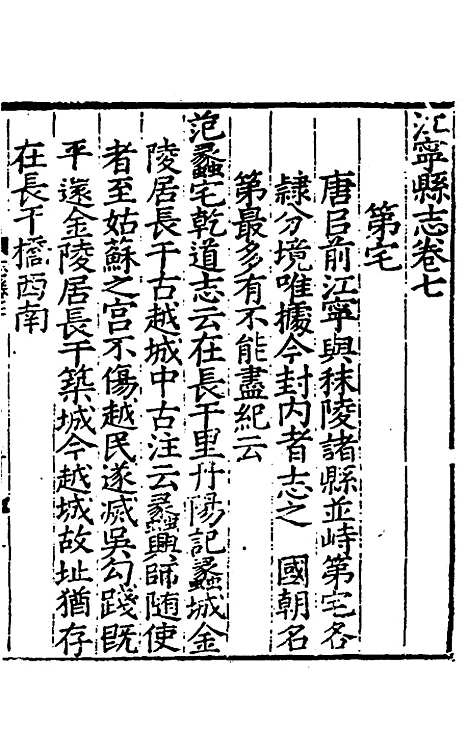 江寧縣志卷七
第宅
唐㠯前江寧與秣陵諸縣並峙第宅各
隸分境唯據今封內者志之　國朝名
第最多有不能盡紀云
范蠡宅乾道志云在長干里丹陽記蠡城金
陵居長干古越城中古注云蠡興師随使
者至姑蘇之宮不傷越民遂滅吳勾踐旣
平還金陵居長干築城今越城故址猶存
在長干橋西南